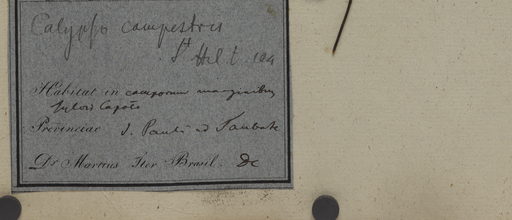 Calypso campestris
St Hil t. 124
Habitat in camporum marginibus
Sylvis Capões
Provinciae S. Pauli ad Taubate
Dr Martius Iter Brasil. &c